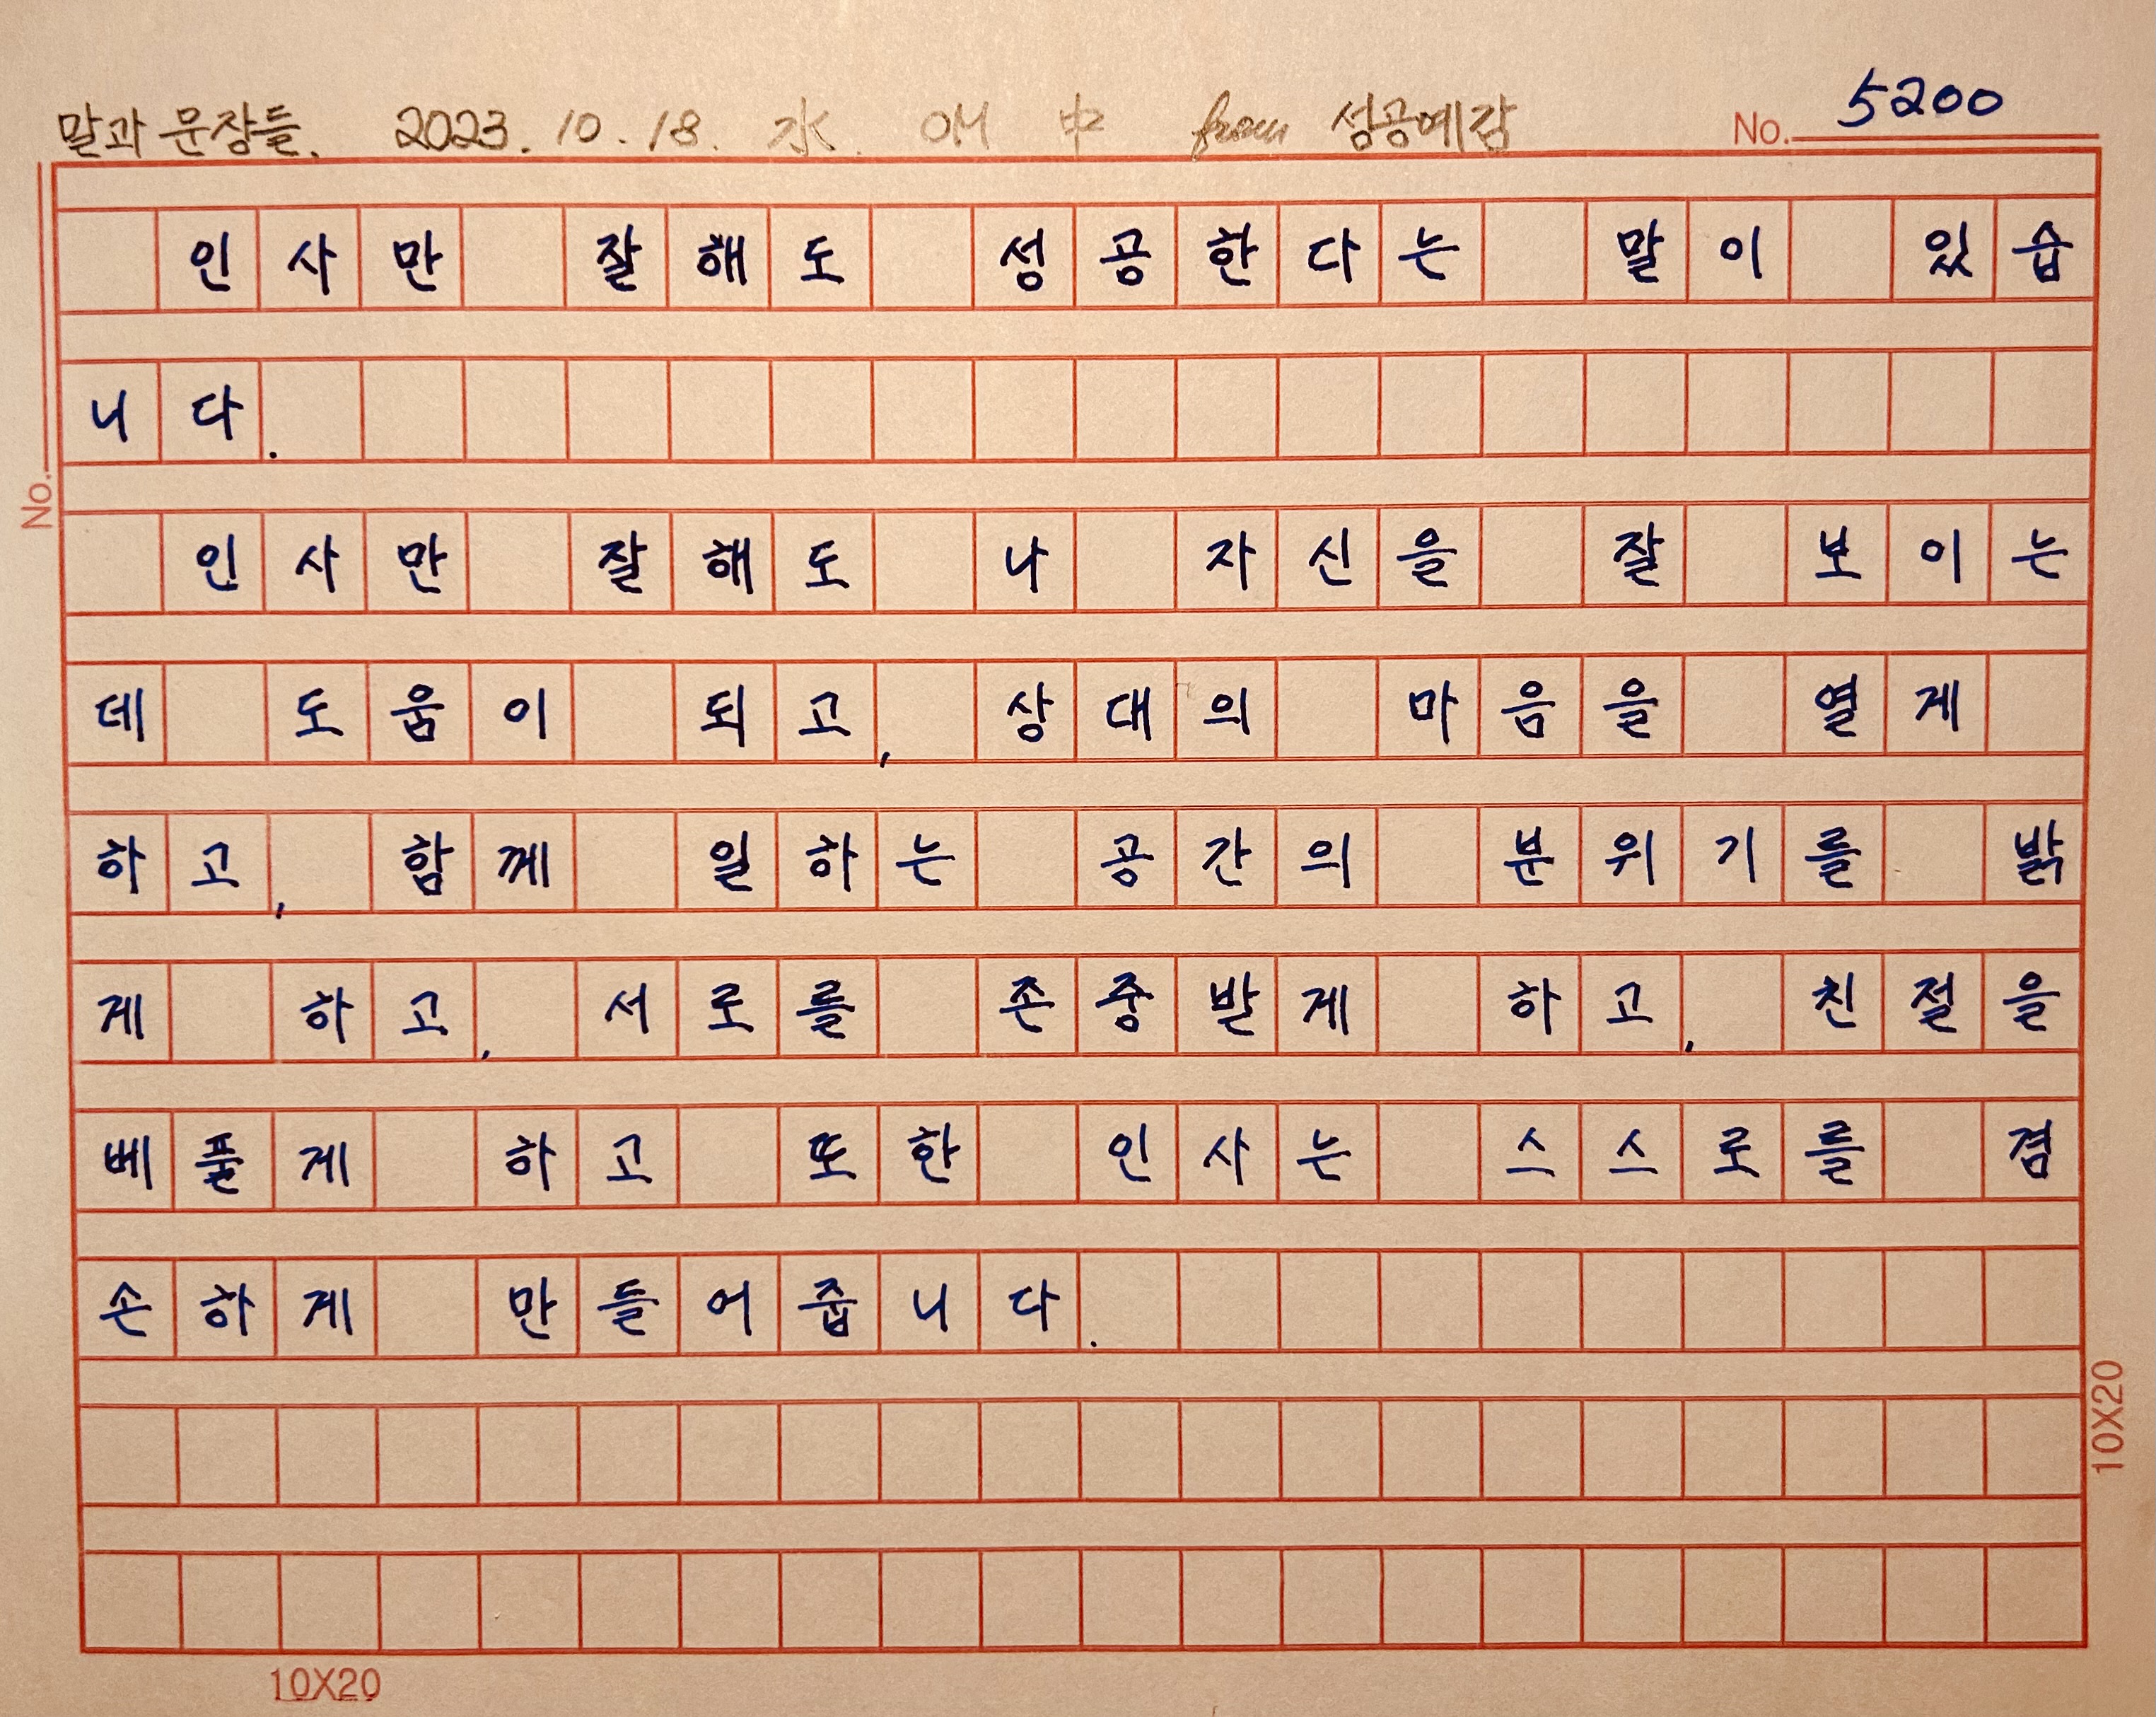 말과 문장들. 2023. 10. 18. 水. OM 中 from 성공예감
No. 5200
인사만 잘해도 성공한다는 말이 있습
니다.
No.
인사만 잘해도 나 자신을 잘 보이는
데 도움이 되고, 상대의 마음을 열게
하고, 함께 일하는 공간의 분위기를 밝
게 하고, 서로를 존중받게 하고, 친절을
베풀게 하고 또한 인사는 스스로를 겸
손하게 만들어줍니다.
10X20
10X20